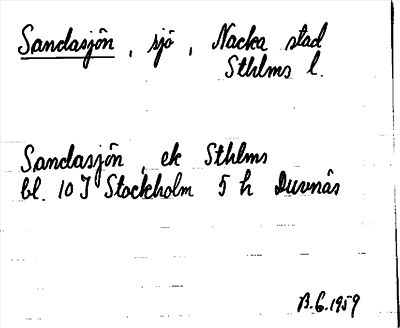 Sandasjön, sjö, Nacka stad
Sthlms l.
Sandasjön, ek Sthlms
bl. 10 I Stockholm 5 h Duvnäs
B.G. 1959